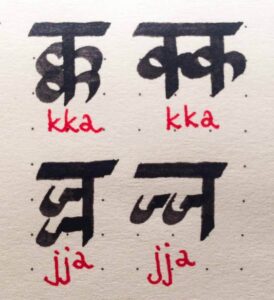 क्क क्क
kka kka
ज्ज ज्ज
jja jja